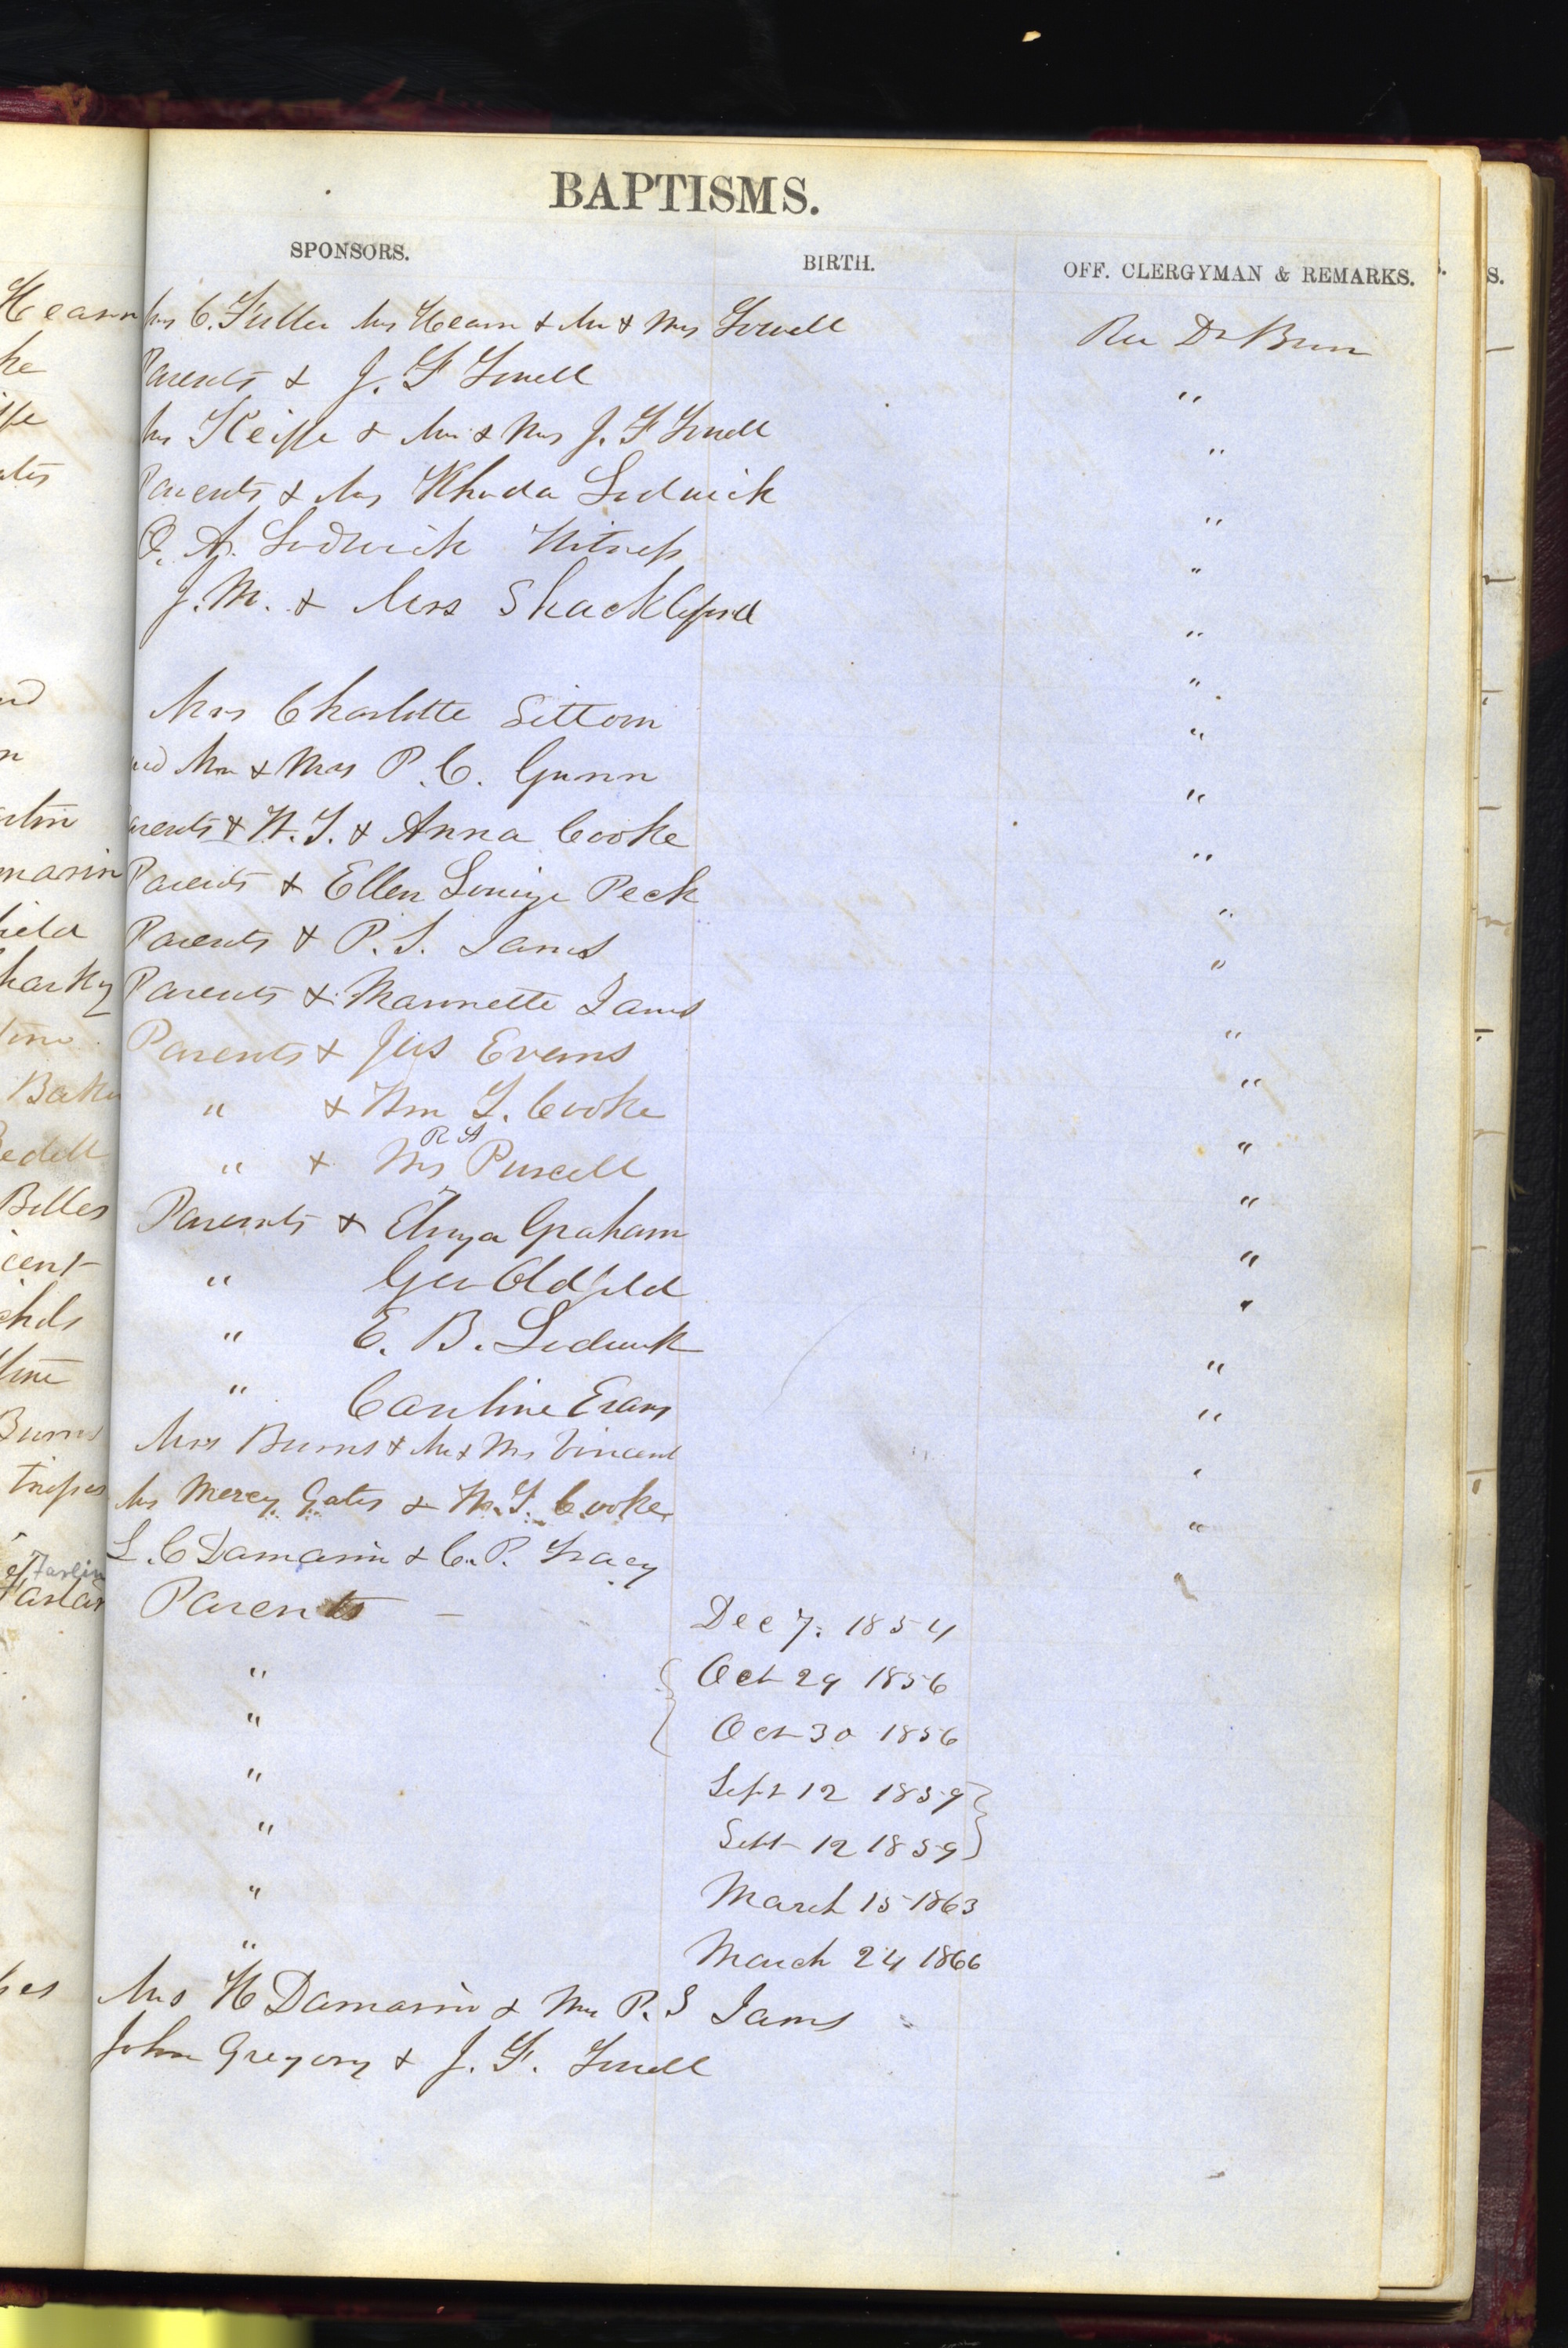 BAPTISMS.
SPONSORS. BIRTH. OFF. CLERGYMAN & REMARKS.
Hearn Mrs C. Fuller Mrs Hearn & Mr & Mrs Lowell Rev Dr Burr
Parents & J. F Lowell "
Mrs & Mr & Mrs J. F Lowell "
Parents & Mrs Rhoda Lodwick "
A. Lodwick Witness "
J. M. & Mrs Shackleford "
"
Mrs Charlotte Sittom "
Mr & Mrs P. C. Gunn "
Parents & W. T. & Anna Cooke "
Parents & Ellen Louize Peck "
Parents & P. S. Iams "
Parents & Mannette Iams "
Parents & Jus Evans "
" & Wm T. Cooke "
R A
" & Mrs Purcell "
Parents & Eliza Graham "
" Geo Oldfield "
" E. B. Lodwick "
" Caroline Evans "
Mrs Burns & Mr & Mrs Vincent "
Mrs Mercy Gates & W. T. Cooke "
L. C Damarin & C. P. Tracy
Parents - Dec 7. 1854
" Oct 29 1856
" Oct 30 1856
" Sept 12 1859
" Sept 12 1859
" March 15 1863
" March 24 1866
Mrs H Damarin & Mr P. S Iams
John Gregory & J. F. Lowell